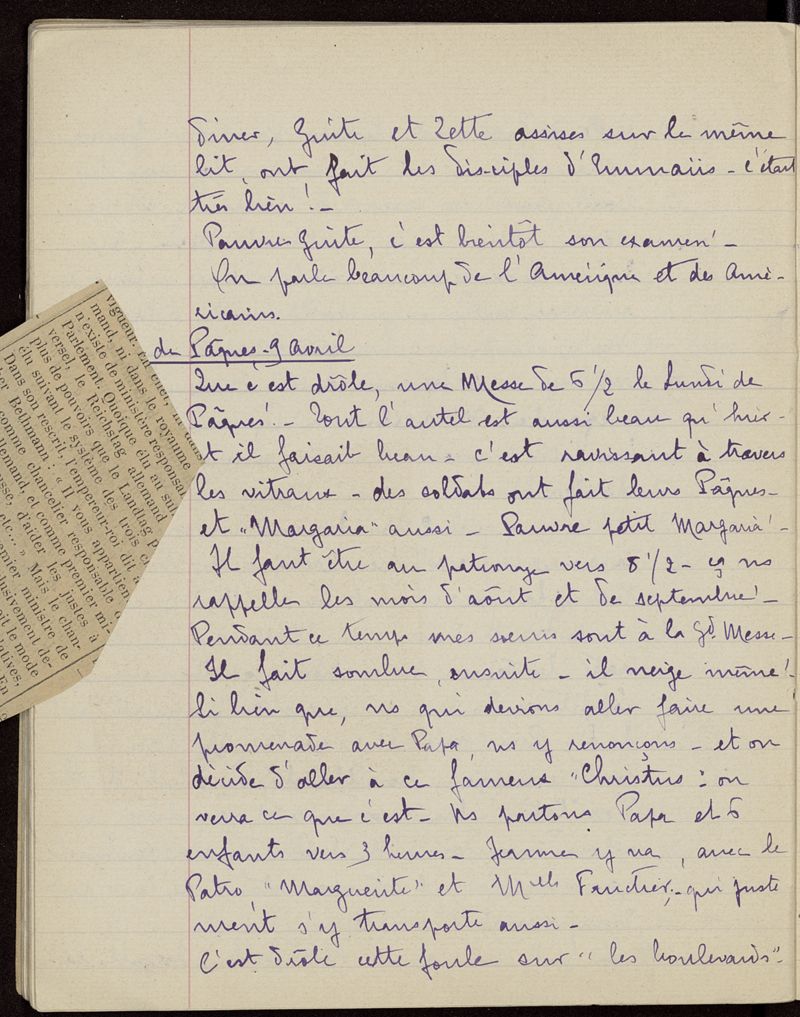 dîner, Guite et Zette assises sur le même
lit, ont fait les disciples d'Emmaüs - c'était
très bien ! -
Pauvre Guite, c'est bientôt son examen ! -
On parle beaucoup de l'Amérique et des Amé-
ricains.
di Pâques - 9 Avril
Que c'est drôle, une Messe de 6 1/2 le Lundi de
Pâques ! - Tout l'autel est aussi beau qu'hier -
t il faisait beau - c'est ravissant à travers
les vitraux - des soldats ont fait leurs Pâques -
et "Margaria" aussi - Pauvre petit Margaria ! -
Il faut être au patronage vers 8 1/2 - ça ns
rappelle les mois d'août et de septembre ! -
Pendant ce temps mes soeurs sont à la Gd Messe -
Il fait sombre, ensuite - il neige même ! -
Si bien que, ns qui devions aller faire une
promenade avec Papa, ns y renonçons - et on
décide d'aller à ce fameux "Christus : on
verra ce que c'est - Ns partons Papa et 6
enfants vers 3 heures - Jeanne y va, avec le
Patro "Marguerite" et Melle - qui juste
ment s'y transporte aussi -
C'est drôle cette foule sur "les boulevards" -
vigueur.
mand, ni dans le royaume
n'existe de ministère responsa
Parlement. Quoique élu au suf
versel, le Reichstag allemand
plus de pouvoirs que le Landtag
élu suivant le système des trois c
Dans son rescrit, l'empereur-roi dit à
Bethmann : « Il vous appartien
comme chancelier responsable d
lemand, et comme premier mi-
d'aider les justes a
etc... » Mais le chan-
emier ministre de
lusivement de-
it le mode
atives,
En